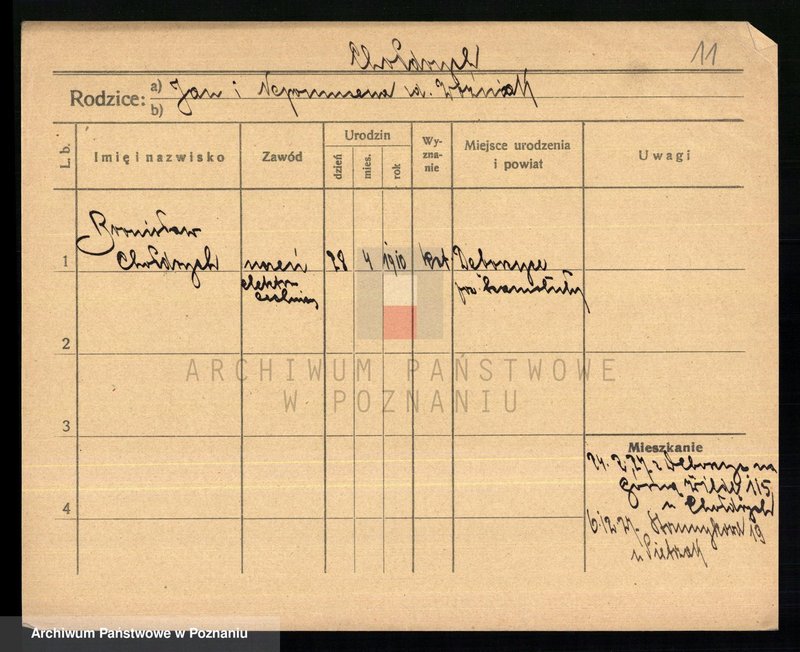 Chołdrych 11
Rodzice: a) Jan i Nepomucena z d. Woźniak
b)
L. b. Imię i nazwisko Zawód Urodzin dzień mies. rok Wyznanie Miejsce urodzenia i powiat Uwagi
Bronisław
1 Chołdrych uczeń 28 4 1910 kat. Dobrojewo
elektro pow. Szamotuły
2
ARCHIWUM PAŃSTWOWE
W POZNANIU
3
Mieszkanie
24. 2. 27. z na
Górną Wildę 115
4 u Chołdrych
6.12.27. 19
u Pietrzak
Archiwum Państwowe w Poznaniu